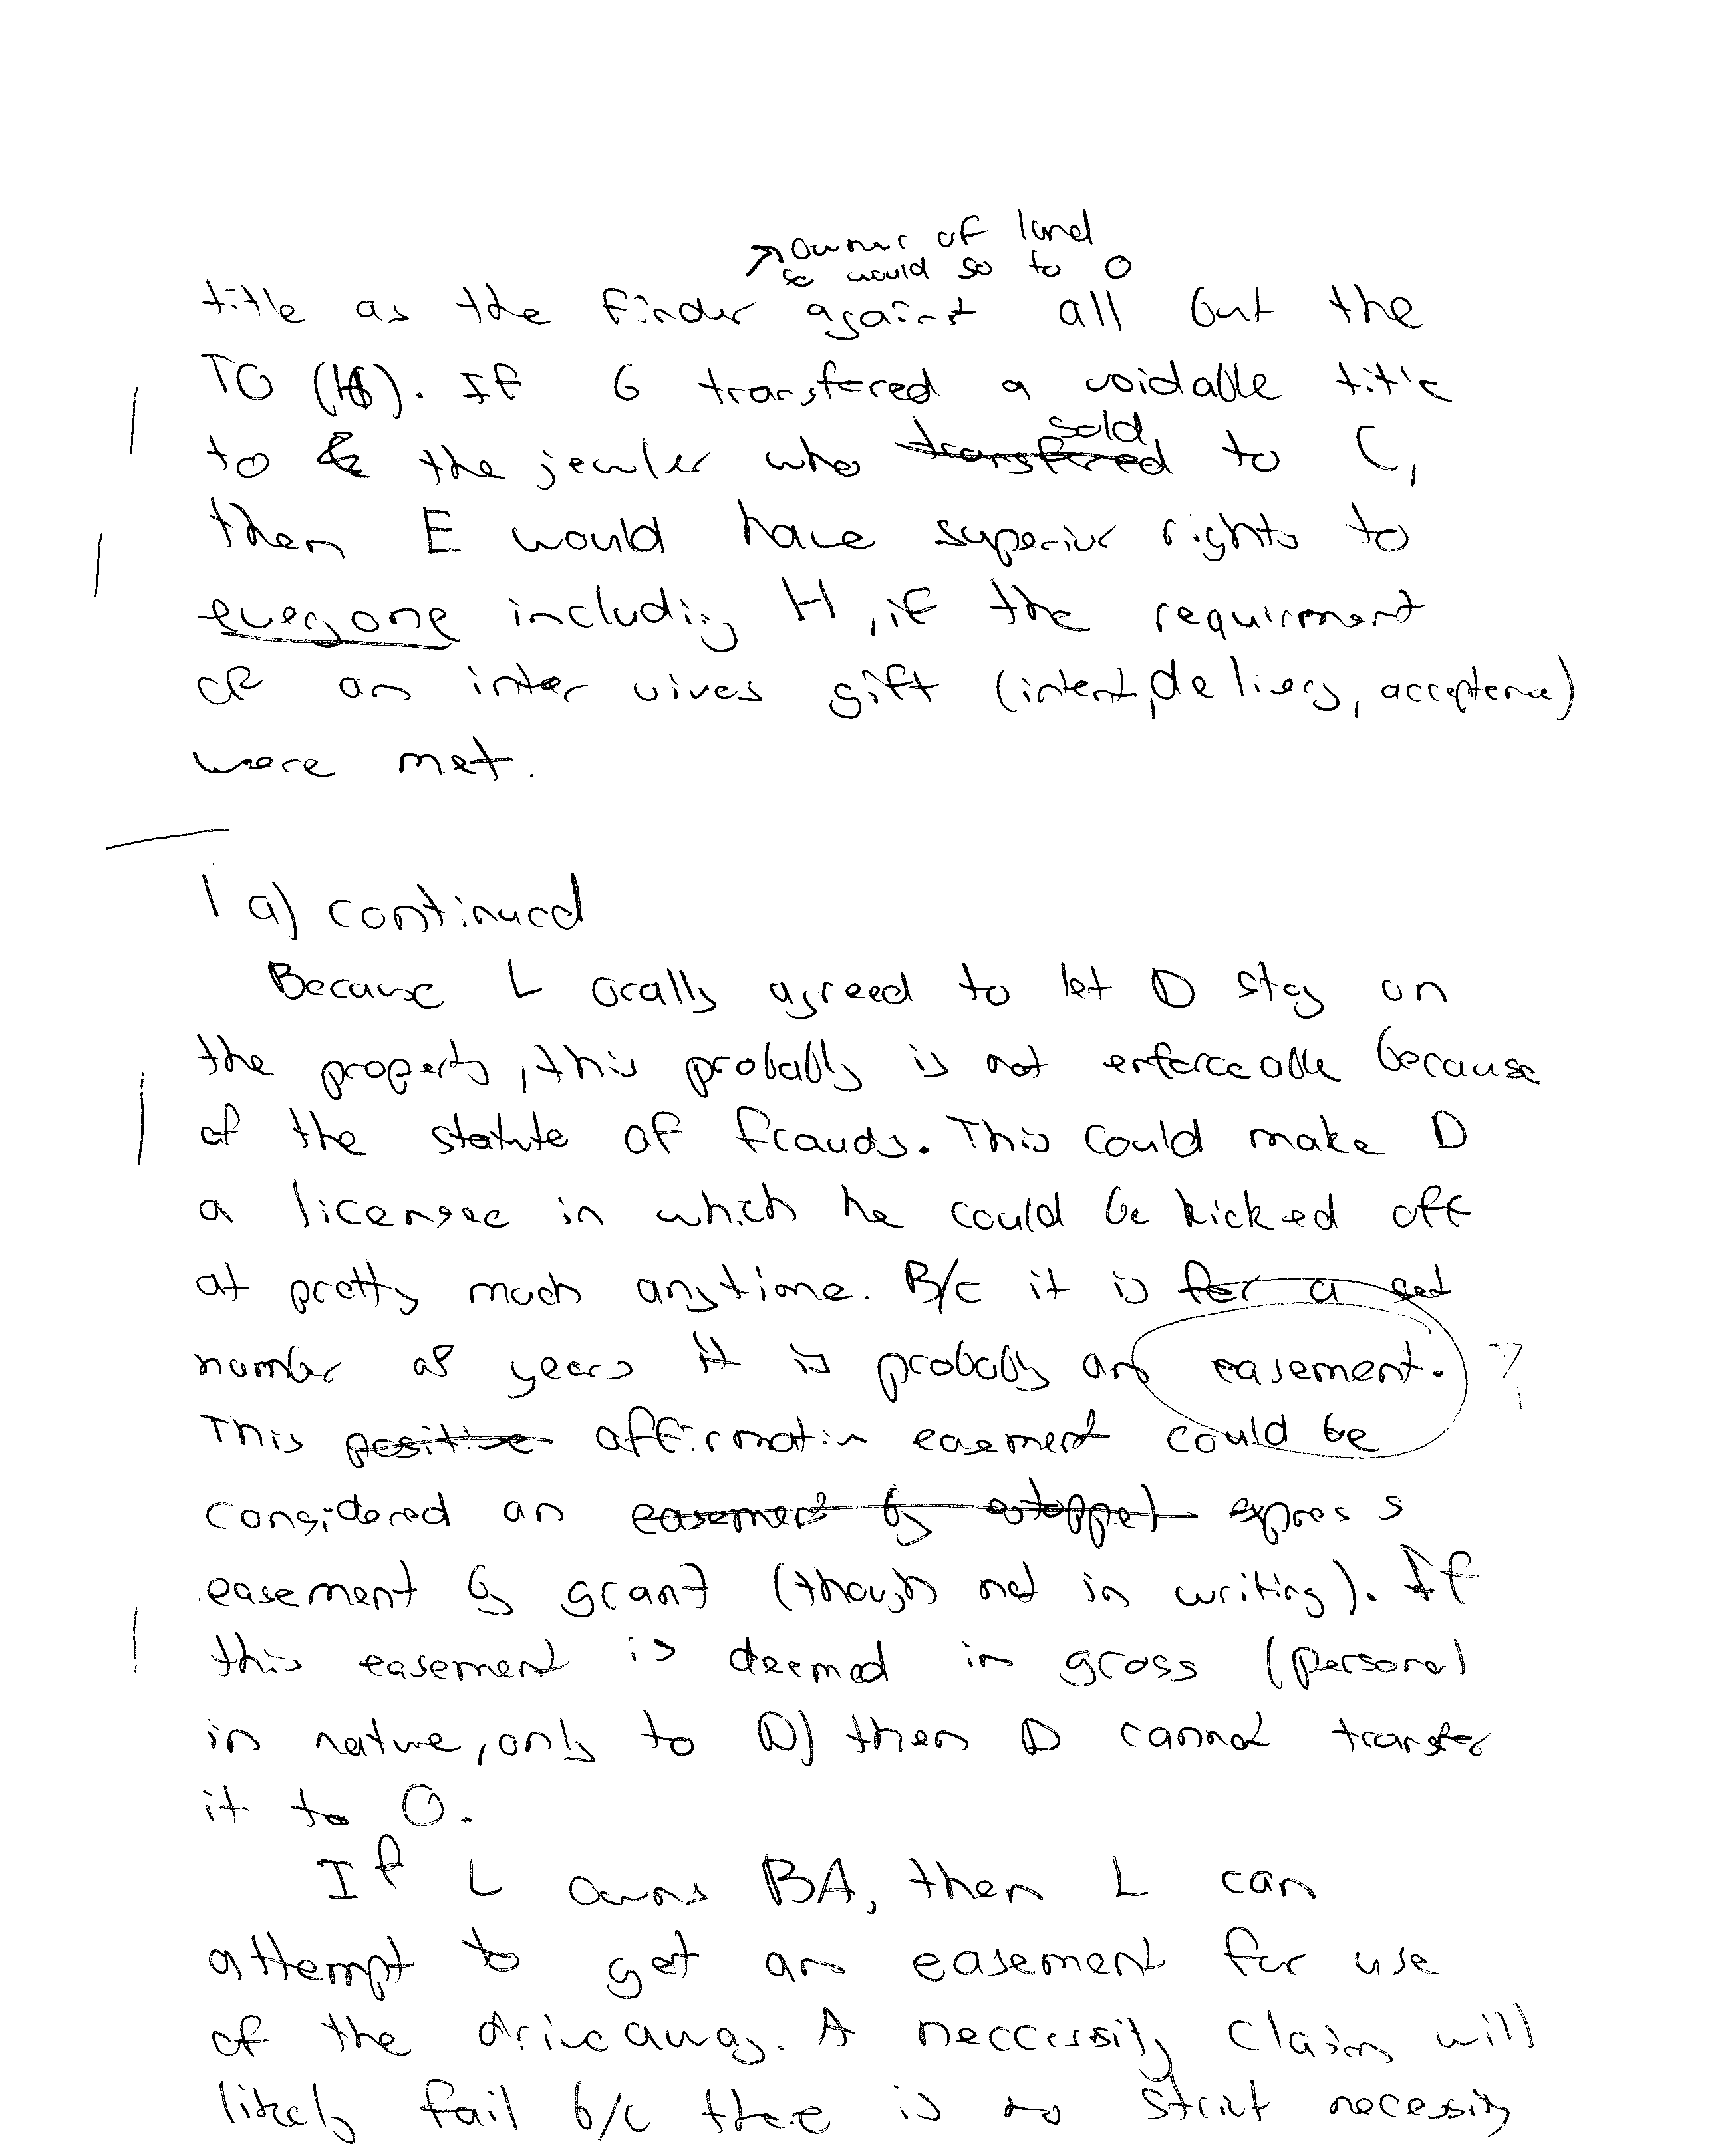 ↗ owner of land
so would go to O
title as the finder against all but the
TO (H). If G transfered a voidable title
to the jewler who transfered sold to C,
then E would have superior rights to
everyone including H, if the requirment
of an inter vives gift (intent, delivery, acceptence)
were met.
1 a) continued
Because L orally agreed to let D stay on
the property, this probably is not enforceable because
of the statute of frauds. This could make D
a licensee in which he could be kicked off
at pretty much anytime. B/c it is for a set
number of years it is probably an easement. ?
This positive affirmative easement could be
considered an easement by estoppel express
easement by grant (though not in writing). If
this easement is deemed in gross (personal
in nature, only to D) then D cannot transfer
it to O.
If L owns BA, then L can
attempt to get an easement for use
of the driveaway. A neccessity claim will
likely fail b/c there is no strict necessity